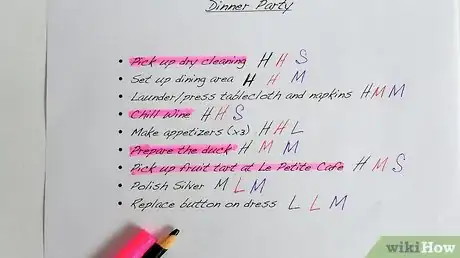 Dinner Party
• Pick up dry cleaning H H S
• Set up dining area H H M
• Launder/press tablecloth and napkins H M M
• Chill wine H H S
• Make appetizers (x3) H H L
• Prepare the duck H M M
• Pick up fruit tart at Le Petite Cafe H M S
• Polish Silver M L M
• Replace button on dress L L M
wikiHow